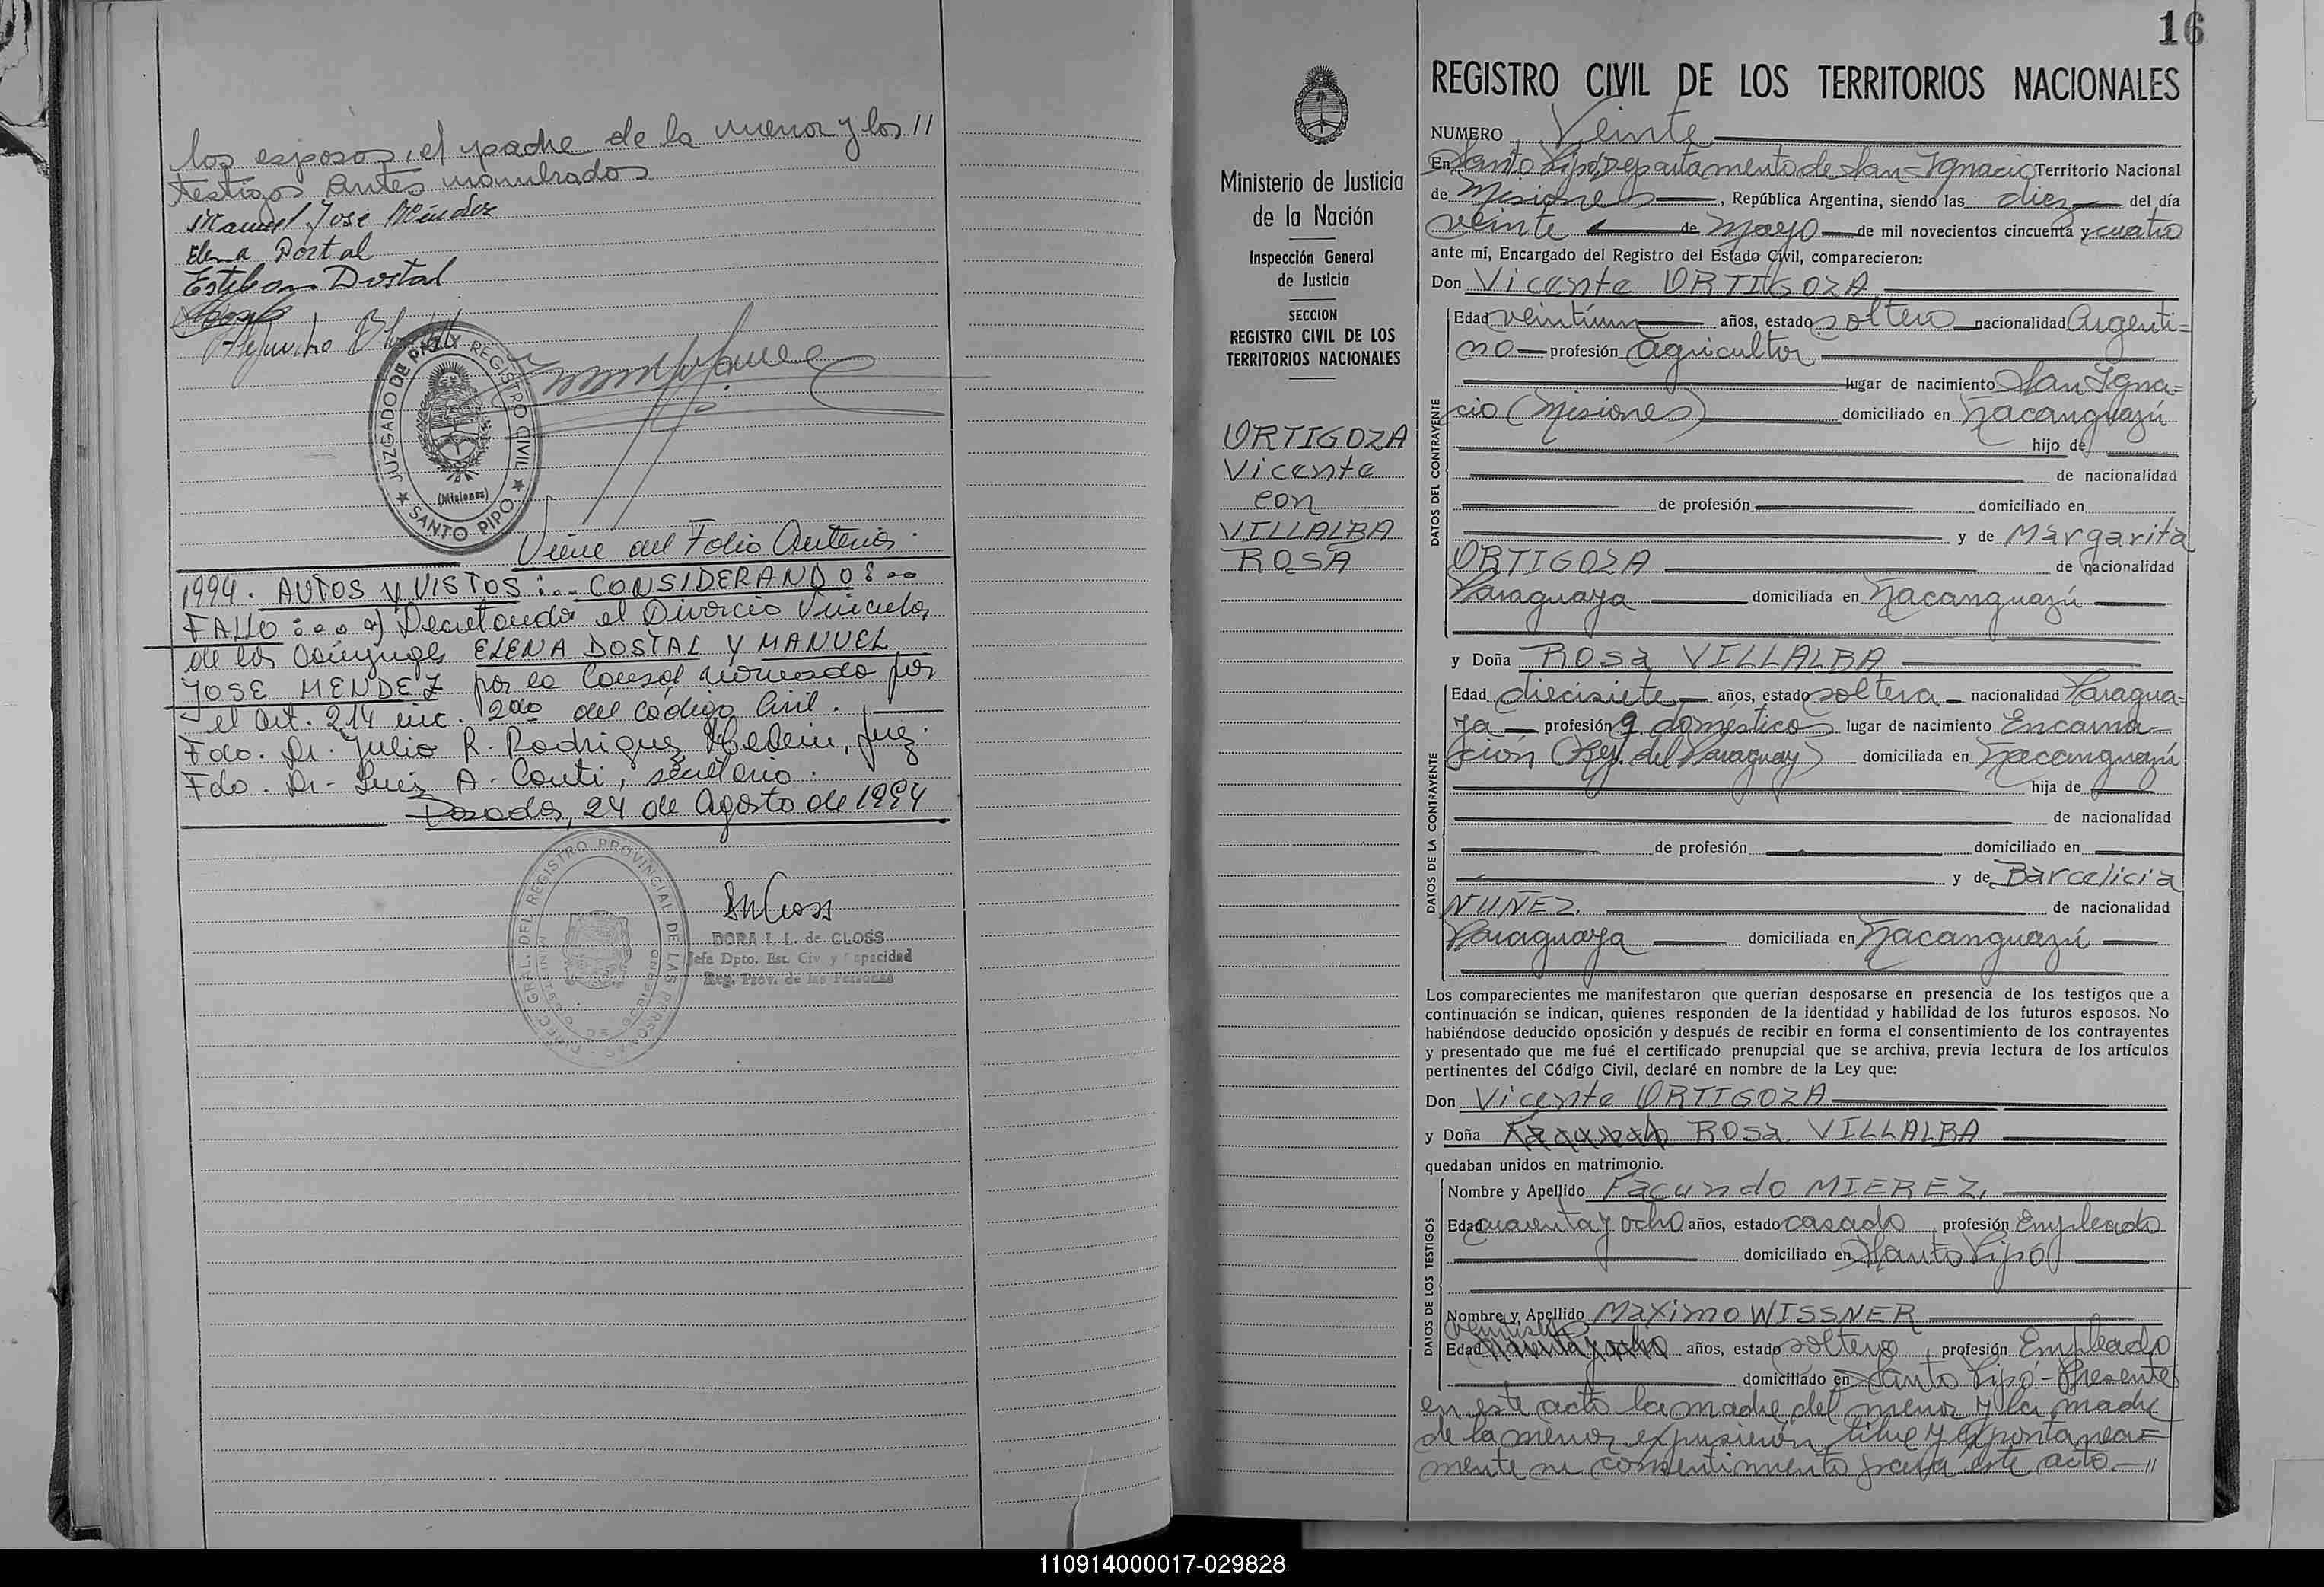 los esposos, el padre de la menor y los //
testigos antes nombrados
Manuel José Méndez
Elena Dostal
Esteban Dostal
JUZGADO DE PAZ Y REGISTRO CIVIL
(Misiones)
★ SANTO PIPO ★
Viene del Folio Anterior.
1994. AUTOS Y VISTOS:... CONSIDERANDO:...
FALLO:... a) Decretando el Divorcio Vincular
de los cónyuges ELENA DOSTAL Y MANUEL
JOSE MENDEZ por la causal normado por
el Art. 214 inc. 2do del Código Civil.
Fdo. Dr. Julio R. Rodriguez, Juez.
Fdo. Dr. Luis A. Conti, secretario.
Posadas, 24 de Agosto de 1994
DIREC. GRAL. DEL REGISTRO PROVINCIAL DE LAS PERSONAS
DORA I. L. de CLOSS
Jefe Dpto. Est. Civ. y Capacidad
Reg. Prov. de las Personas
16
Ministerio de Justicia
de la Nación
Inspección General
de Justicia
SECCION
REGISTRO CIVIL DE LOS
TERRITORIOS NACIONALES
ORTIGOZA
Vicente
con
VILLALBA
ROSA
REGISTRO CIVIL DE LOS TERRITORIOS NACIONALES
NUMERO Veinte
En Santo Pipó, Departamento de San Ignacio Territorio Nacional
de Misiones, República Argentina, siendo las diez del día
veinte de Mayo de mil novecientos cincuenta y cuatro
ante mí, Encargado del Registro del Estado Civil, comparecieron:
Don Vicente ORTIGOZA
DATOS DEL CONTRAYENTE
Edad veintiun años, estado soltero nacionalidad Argenti=
no profesión agricultor
lugar de nacimiento San Igna=
cio (Misiones) domiciliado en Ñacanguazú
hijo de
de nacionalidad
de profesión domiciliado en
y de Margarita
ORTIGOZA de nacionalidad
Paraguaya domiciliada en Ñacanguazú
y Doña ROSA VILLALBA
DATOS DE LA CONTRAYENTE
Edad diecisiete años, estado soltera nacionalidad Paragua=
ya profesión q. domésticos lugar de nacimiento Encarna=
ción (Rep. del Paraguay) domiciliada en Ñacanguazú
hija de
de nacionalidad
de profesión domiciliado en
y de Barcelicia
NUÑEZ. de nacionalidad
Paraguaya domiciliada en Ñacanguazú
Los comparecientes me manifestaron que querían desposarse en presencia de los testigos que a
continuación se indican, quienes responden de la identidad y habilidad de los futuros esposos. No
habiéndose deducido oposición y después de recibir en forma el consentimiento de los contrayentes
y presentado que me fué el certificado prenupcial que se archiva, previa lectura de los artículos
pertinentes del Código Civil, declaré en nombre de la Ley que:
Don Vicente ORTIGOZA
y Doña ROSA VILLALBA
quedaban unidos en matrimonio.
DATOS DE LOS TESTIGOS
Nombre y Apellido Facundo MIEREZ,
Edad cuarenta y ocho años, estado casado profesión Empleado
domiciliado en Santo Pipó
Nombre y Apellido Maximo WISSNER
Edad años, estado soltero, profesión Empleado
domiciliado en Santo Pipó - Presente
en este acto la madre del menor y la madre
de la menor expusieron libre y espontanea=
mente su consentimiento para este acto. //
110914000017-029828